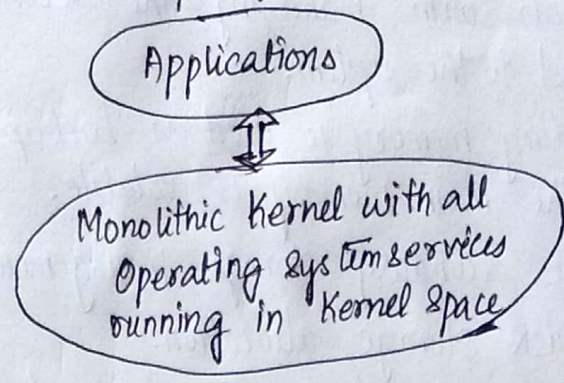 Applications
Monolithic Kernel with all
Operating system services
running in Kernel Space